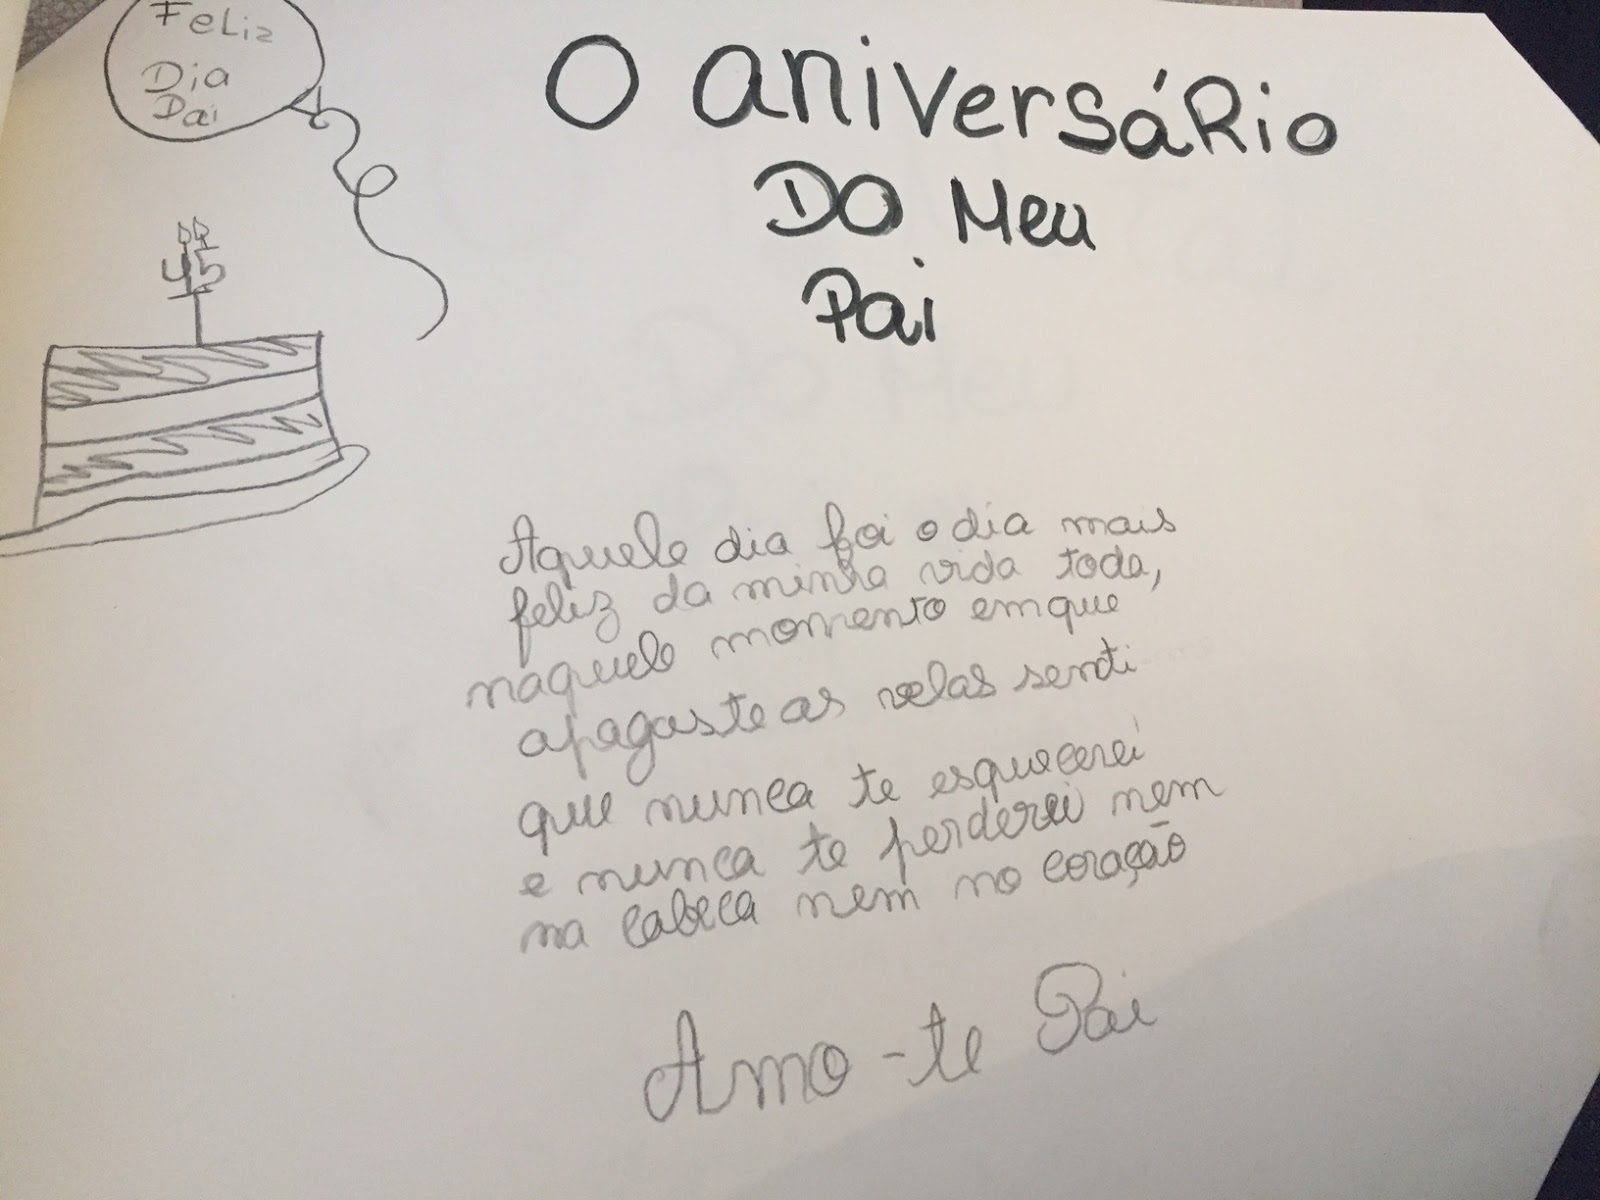 Feliz
Dia
Pai
O aniversário
Do Meu
Pai
45
Aquele dia foi o dia mais
feliz da minha vida toda,
naquele momento em que
apagaste as velas senti
que nunca te esquecerei
e nunca te perderei nem
na cabeca nem no coração
Amo-te Pai